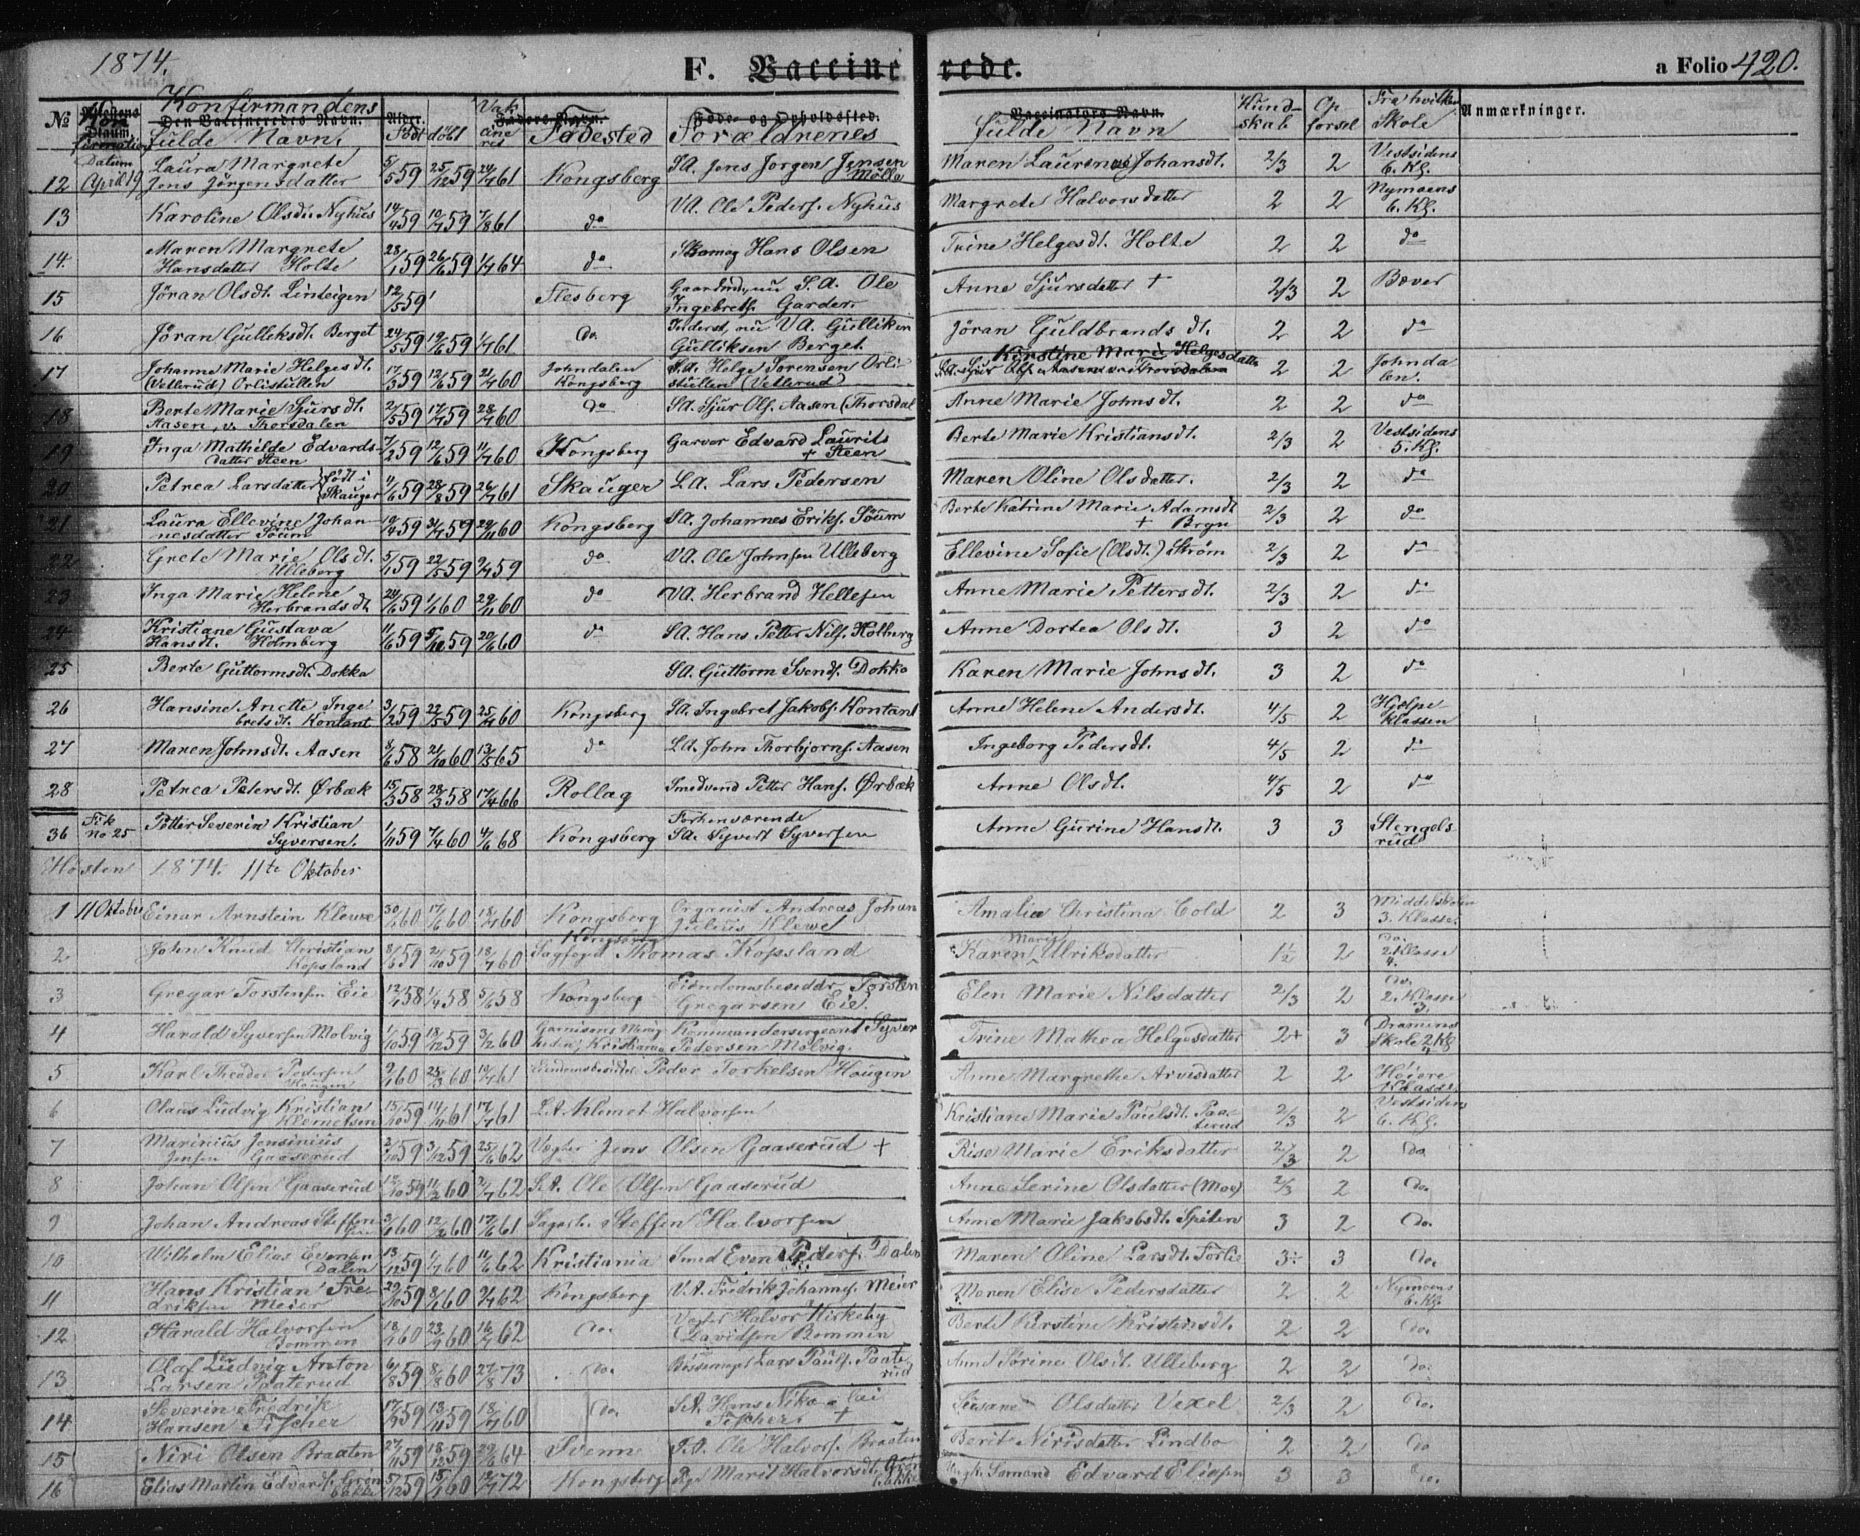 1874.
F. Vaccinerede.
a Folio 420.
№ Konfirmandens fulde Navn, Født døbt Vakcineret Fødested Forældrenes fulde Navn Kundskab Opførsel Fra hvilken Skole Anmærkninger.
Den Vaccineredes Navn. Alder. Faders Navn. Føde- og Opholdssted. Vaccinators Navn.
12 Datum April 19 Laura Margrete Jens Jörgensdatter 5/5 59 25/12 59 24/7 61 Kongsberg SA. Jens Jörgen Jensen Mölla Maren Laurense Johansdt. 2/3 2 Vestsidens 6. Kl.
13 Karoline Olsdt. Nyhus 14/4 59 10/7 59 7/8 61 do VA. Ole Peders. Nyhus Margrete Halvorsdatter 2 2 Nymoens 6. Kl.
14. Maren Margrete Hansdatter Holte 28/1 59 26/6 59 1/7 64 do Skomag Hans Olsen Trine Helgesdt. Holte 2 2 do
15 Jöran Olsdt. Linteigen 12/5 59 Flesberg Gaardmd., nu S.A. Ole Ingebrets. Garder Anne Sjursdatter + 2/3 2 Bæver
16 Jöran Gulliksdt. Berget 24/5 59 19/6 59 1/7 61 do Inderst, nu VA. Gulliken Gulliksen Berget Jöran Guldbrandsdt. 2 2 do
17 Johanne Marie Helgesdt. (Vetlerud) Orlistullen 17/3 59 12/6 59 21/7 60 Johndalen Kongsberg S.A. Helge Sorensen Orlistullen (Vetlerud) Kirstine Marie Helgesdatter 2 2 Johndalen.
18 Berte Marie Sjursdt. Aasen, v. Thorsdalen 2/5 59 17/7 59 28/7 60 do SA. Sjur Ols. Aasen (Thorsdal Anne Marie Johnsdt. 2 2 do
19 Inga Mathilde Edvardsdatter Steen 7/2 59 12/6 59 11/7 60 Kongsberg Garver Edvard Laurits + Steen Berte Marie Kristiansdt. 2/3 2 Vestsidens 5. Kl.
20 Petrea Larsdatter (født i Skauger 11/6 59 28/8 59 26/7 61 Skauger L.A. Lars Pedersen Maren Oline Olsdatter. 2/3 2 do
21 Laura Ellevine Johannesdatter Soum 19/4 59 31/7 59 29/11 60 Kongsberg SA. Johannes Eriks. Soum Berte Katrine Marie Adamsdt + Bryn 2/3 2 do
22 Grete Marie Olsdt. Ulleberg 5/1 59 22/5 59 2/7 59 do VA. Ole Johnsen Ulleberg Ellevine Sofie (Olsdt.) Strøm 2/3 2 do
23 Inga Marie Helene Herbrandsdt 24/6 59 1/1 60 29/11 60 do VA. Herbrand Hellesen Anne Marie Pettersdt. 2/3 2 do
24 Kristiane Gustava Hansdt. Holmberg 11/6 59 9/10 59 20/6 60 do SA. Hans Petter Nils. Holberg Anne Dortea Olsdt. 3 2 do
25 Berte Guttormsdt. Dokka SA. Guttorm Svends. Dokka Karen Marie Johnsdt. 3 2 do
26 Hansine Anette Ingebretsdt. Kontant 3/2 59 22/5 59 25/4 60 Kongsberg SA. Ingebret Jakobs. Kontant Anne Helene Andersdt. 4/5 2 Hjelpeklassen
27 Maren Johnsdt. Aasen 8/6 58 21/10 60 13/5 65 do LA. John Thorbjorns. Aasen Ingeborg Pedersdt. 4/5 2 do
28 Petrea Petersdt. Ørbæk 15/3 58 28/3 58 17/4 66 Rollag Smedsvend Petter Hans. Ørbæk Anne Olsdt. 4/5 2 do
36 No 25 Petter Severin Kristian Syversen. 1/11 59 7/4 60 4/6 68 Kongsberg Forhenværende SA. Syvert Syversen Anne Gurine Hansdt. 3 3 Stengelsrud
Høsten 1874. 11te Oktober
1 11 Oktober Einar Arnstein Klewe 30/4 60 17/6 60 18/7 60 Kongsberg Organist Andreas Johan Julius Klewe Amalia Christina Cold 2 3 Middelskolen 3. Klasse
2 John Knud Christian Kopsland 8/6 59 24/10 59 18/7 60 Kongsberg Sagfogd Thomas Kopsland Karen Marie Ulriksdatter 1½ 2 do. 2 Klasse
3 Gregar Torstensen Eie 12/1 58 1/4 58 5/6 58 Kongsberg Eiendomsbesidder Torsten Gregarsen Eie. Elen Marie Nilsdatter 2/3 2 do. 2. Klasse
4 Harald Syversen Molvig 1/10 59 18/12 59 3/2 60 Garnisons Menigheden i Kristiania Kommandersergeant Syver Pedersen Molvig. Trine Mathea Helgesdatter 2+ 3 Dramens Skole 2 Kl
5 Karl Theodor Pedersen Hougen 9/1 60 25/3 60 19/7 61 Eiendomsbesidder Peder Torkelsen Hougen Anne Margrethe Arvesdatter 2 2 Høiere Klasse
6 Olaus Ludvig Kristian Klemetsen 15/10 59 14/4 61 17/7 61 L.A. Klemet Halvorsen Kristiane Marie Paulsdt. Paaterud 2/3 2 Vestsiden 6. Kl.
7 Marinius Jensinius Jensen Gaaserud 2/10 59 3/12 59 25/6 62 Vægter Jens Olsen Gaaserud + Rise Marie Eriksdatter 2/3 2 do
8 Johan Olsen Gaaserud 12/10 59 11/2 60 2/7 62 S.A. Ole Olsen Gaaserud Anne Serine Olsdatter (Moe) 2/3 2 do.
9 Johan Andreas Steffensen 3/1 60 12/2 60 17/6 61 Sagarb. Steffen Halvorsen Anne Marie Jakobsdt. Spiten 3 2 do.
10 Wilhelm Elias Evensen Dalen 13/12 59 1/7 60 11/6 62 Kristiania Smed Even Peders. Dalen Maren Oline Larsdt. Forlie 3÷ 3 do.
11 Hans Kristian Fredriksen Meier 29/10 59 8/1 60 9/7 62 Kongsberg V.A. Fredrik Johannes. Meier Maren Elise Pedersdatter 2 2 Nymoens 6. Kl.
12 Harald Halvorsen Bommen 18/1 60 23/9 60 16/7 62 do. Vegter Halvor Kirkeby Davidsen Bommen Berte Kirstine Kristensdt. 2 2 do.
13 Olaf Ludvig Anton Larsen Paaterud 6/8 59 8/8 60 27/8 73 do. Bøssemager Lars Pauls. Paaterud Anne Sörine Olsdt. Ulleberg 2 2 do.
14 Severin Fredrik Hansen Fischer 17/9 59 13/11 59 18/7 60 do. S.A. Hans Nikolai Fischer + Susane Olsdatter Vexel 2/3 2 do.
15 Niri Olsen Braaten 27/11 59 18/12 59 29/6 64 Svenne F.A. Ole Halvors. Braaten Berit Nirisdatter Lindbo 2 2 do
16 Elias Martin Edvards. Grønbakke 5/12 59 15/1 60 12/7 72 Kongsberg Pige Marit Halvorsdt. Grønbakke Ungk. Sømand Edvard Eliesen 3 3 do.